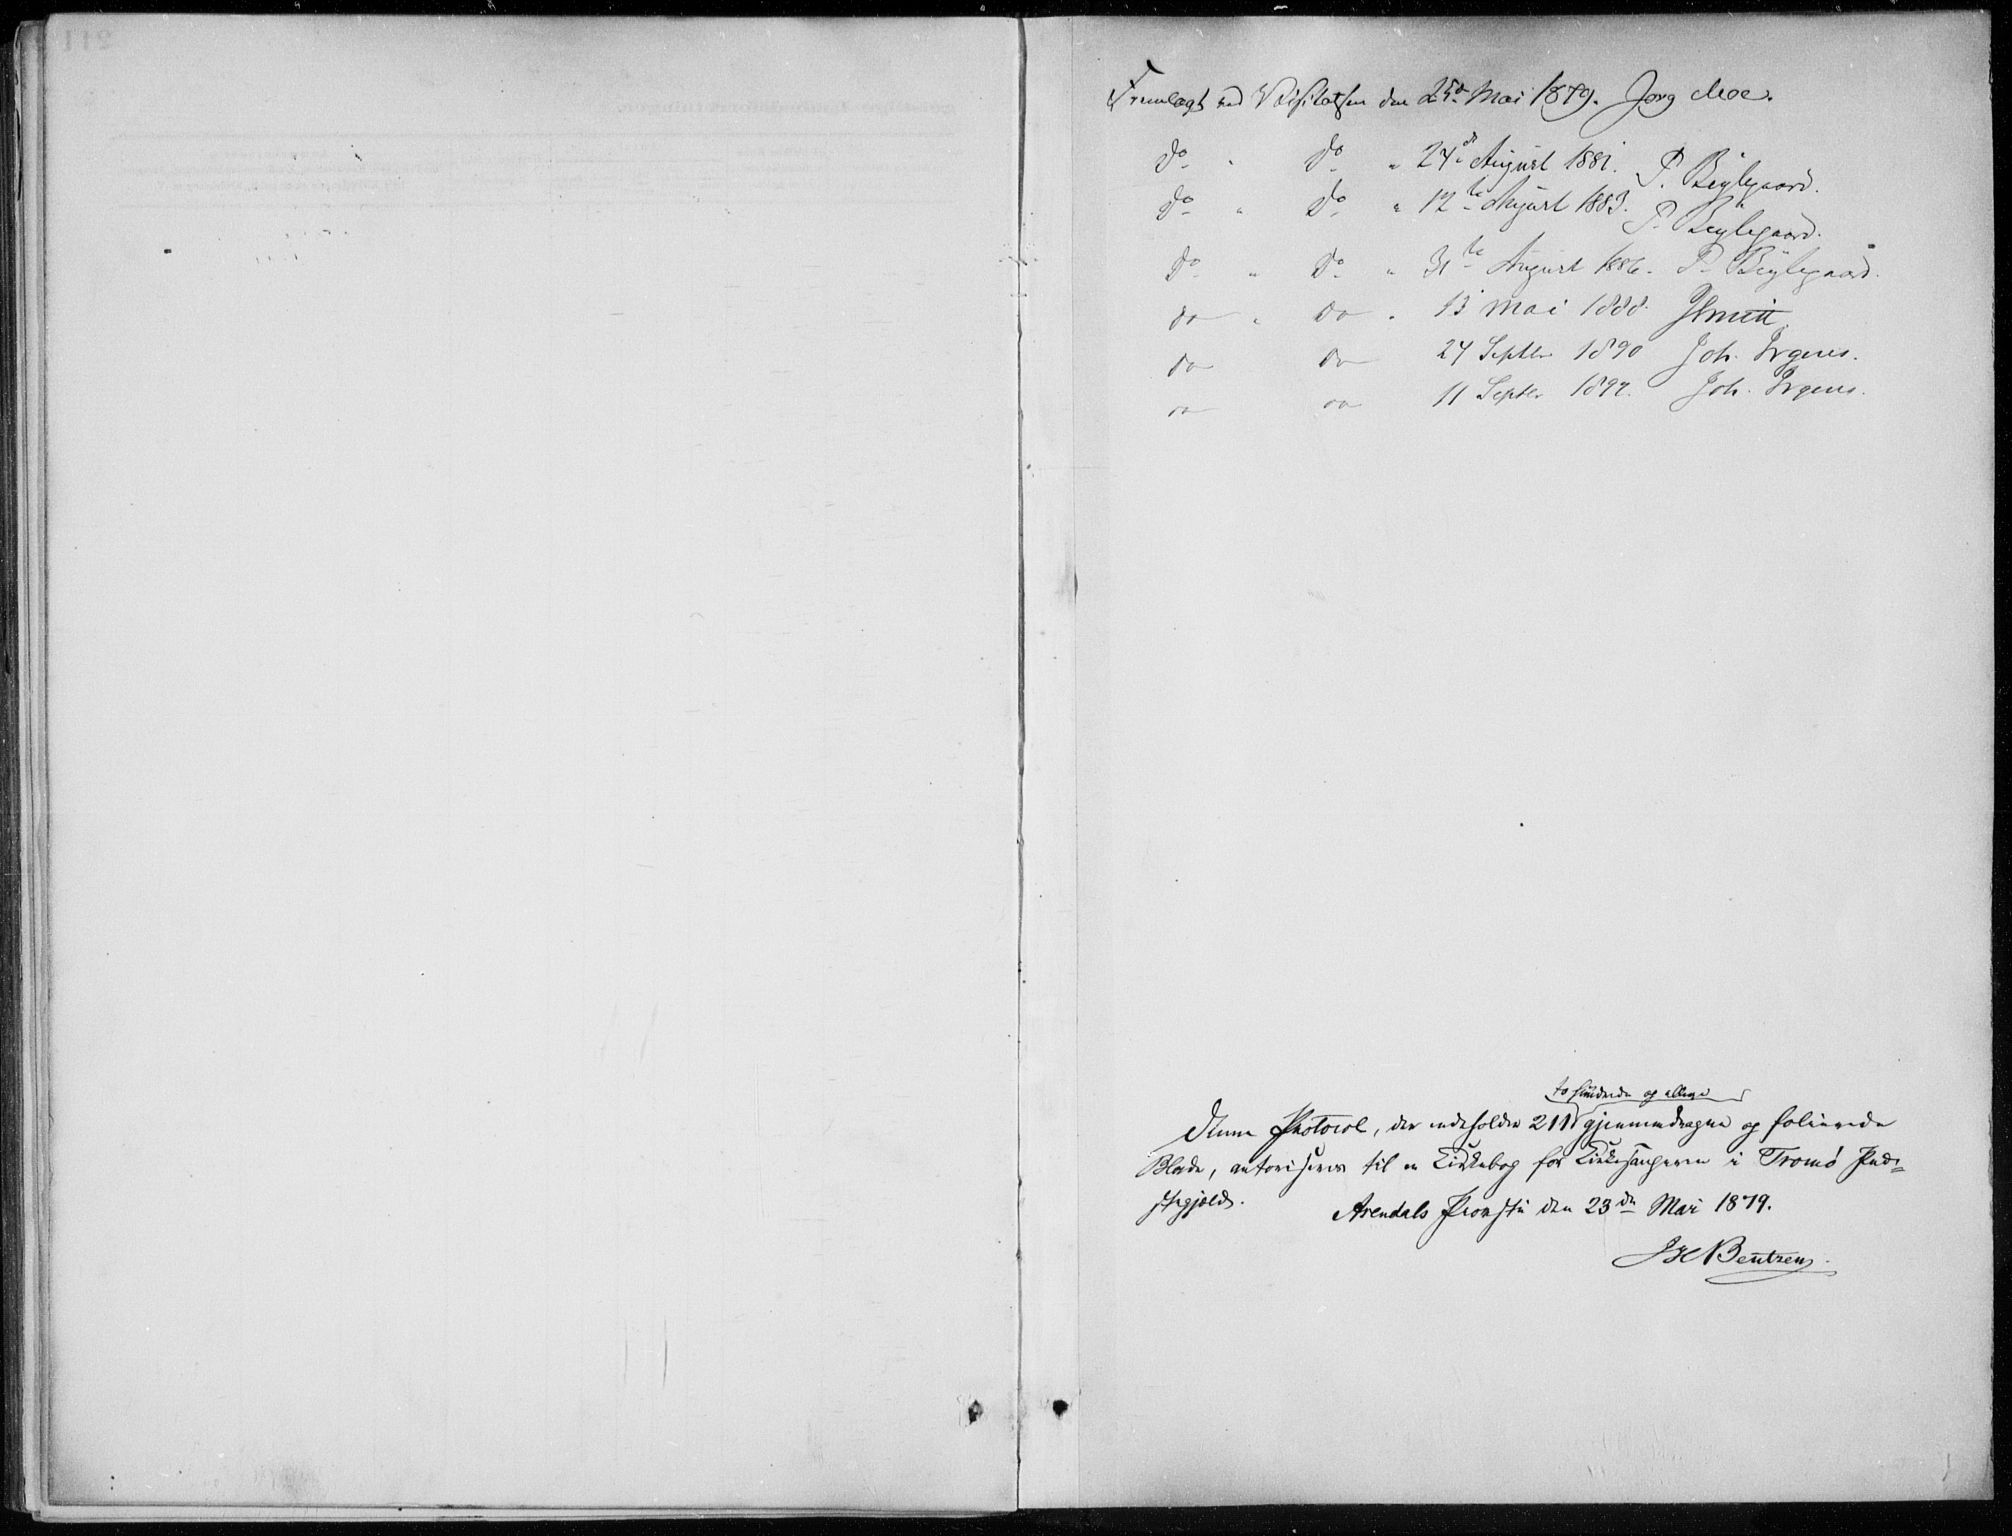 Fremlagt ved Visitatsen den 25de Mai 1879. Jørg Moe.
Do " Do " 24de August 1881. P. Bøylegaard.
Do " Do " 12te August 1883. P. Bøylegaard.
Do " Do " 31te August 1886. P. Bøylegaard.
Do " Do " 13 Mai 1888.
Do Do 24 Septbr 1890 Joh. Irgens.
Do Do 11 Septbr 1892. Joh. Irgens.
to hundrede og elleve
Denne Protocol, der indeholder 211 gjennemdragne og folierede
Blade, autoriseres til en Kirkebog for Kirkesangeren i Tromø Præ=
stegjeld.
Arendals Provsti den 23de Mai 1879.
JH Bentzen.